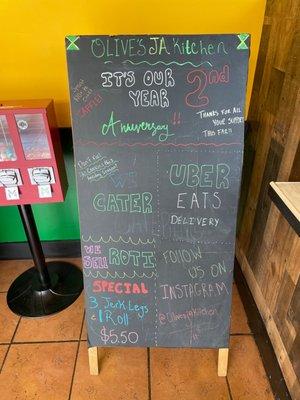 OLIVE'S JA Kitchen
IT'S OUR 2nd
YEAR
Anniversary!!
THANKS FOR ALL
YOUR SUPPORT
THIS FAR!!
Don't
WE
CATER
UBER
EATS
DELIVERY
WE
SELL ROTI
FOLLOW
US ON
INSTAGRAM
SPECIAL
3 Jerk Legs
& 1 Roll
$5.50